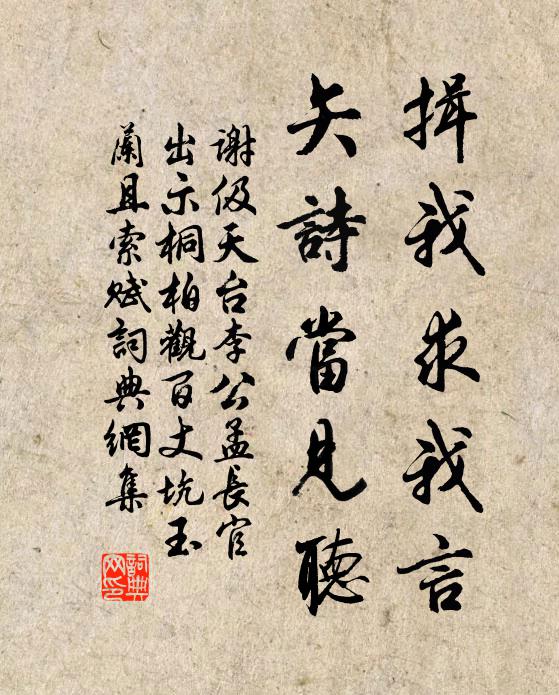 揖我求我言
矢詩當見聽
謝伋天台李公孟長官
出示桐柏觀百丈坑玉
蘭且索賦詞典網集
詞典
网印